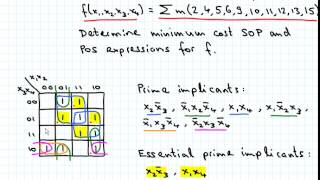 f(x₁,x₂,x₃,x₄) = ∑ m(2,4,5,6,9,10,11,12,13,15)
Determine minimum cost SOP and
POS expressions for f.
x₁x₂
x₃x₄ 00 01 11 10
00 1 1
01 1 1 1
11 1 1
10 1 1 1
Prime implicants:
x₂x̄₃ , x̄₁x₂x̄₄ , x₁x₄ , x̄₁x₂x₃ ,
x̄₁x₃x̄₄ , x̄₂x₃x̄₄
Essential prime implicants:
x₂x̄₃ , x₁x₄